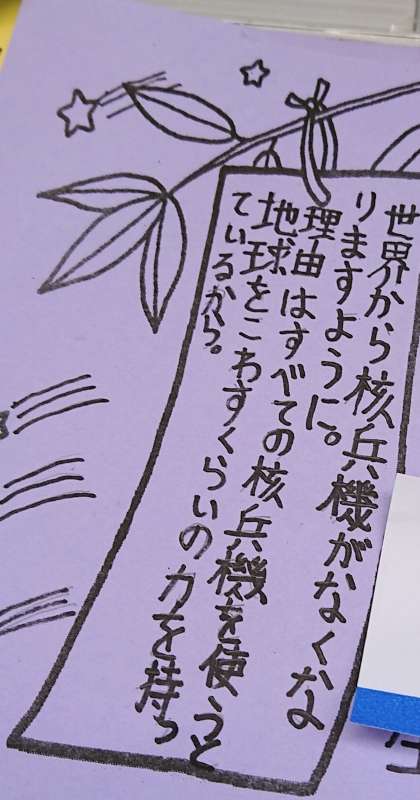 世界から核兵機がなくな
りますように。
理由はすべての核兵機を使うと
地球をこわすくらいの力を持っ
ているから。